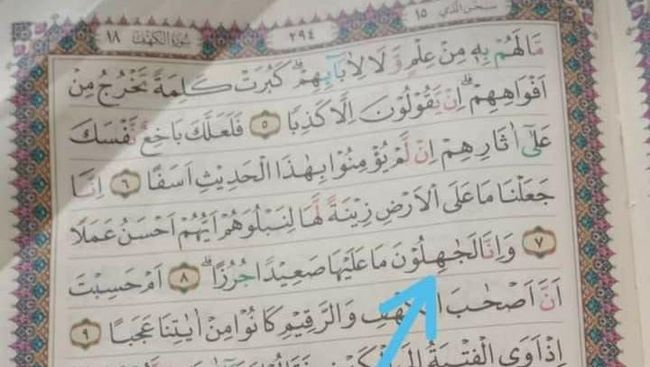 سبحن الذي ١٥ ٢٩٤ سُوْرَةُ الْكَهْفِ ١٨
مَا لَهُمْ بِهٖ مِنْ عِلْمٍ وَّلَا لِاٰبَاۤىِٕهِمْۗ كَبُرَتْ كَلِمَةً تَخْرُجُ مِنْ
اَفْوَاهِهِمْۗ اِنْ يَّقُوْلُوْنَ اِلَّا كَذِبًا ٥ فَلَعَلَّكَ بَاخِعٌ نَّفْسَكَ
عَلٰٓى اٰثَارِهِمْ اِنْ لَّمْ يُؤْمِنُوْا بِهٰذَا الْحَدِيْثِ اَسَفًا ٦ اِنَّا
جَعَلْنَا مَا عَلَى الْاَرْضِ زِيْنَةً لَّهَا لِنَبْلُوَهُمْ اَيُّهُمْ اَحْسَنُ عَمَلًا
٧ وَاِنَّا لَجٰهِلُوْنَ مَا عَلَيْهَا صَعِيْدًا جُرُزًاۗ ٨ اَمْ حَسِبْتَ
اَنَّ اَصْحٰبَ وَالرَّقِيْمِ كَانُوْا مِنْ اٰيٰتِنَا عَجَبًا ٩
اِذْ اَوَى الْفِتْيَةُ اِلَى